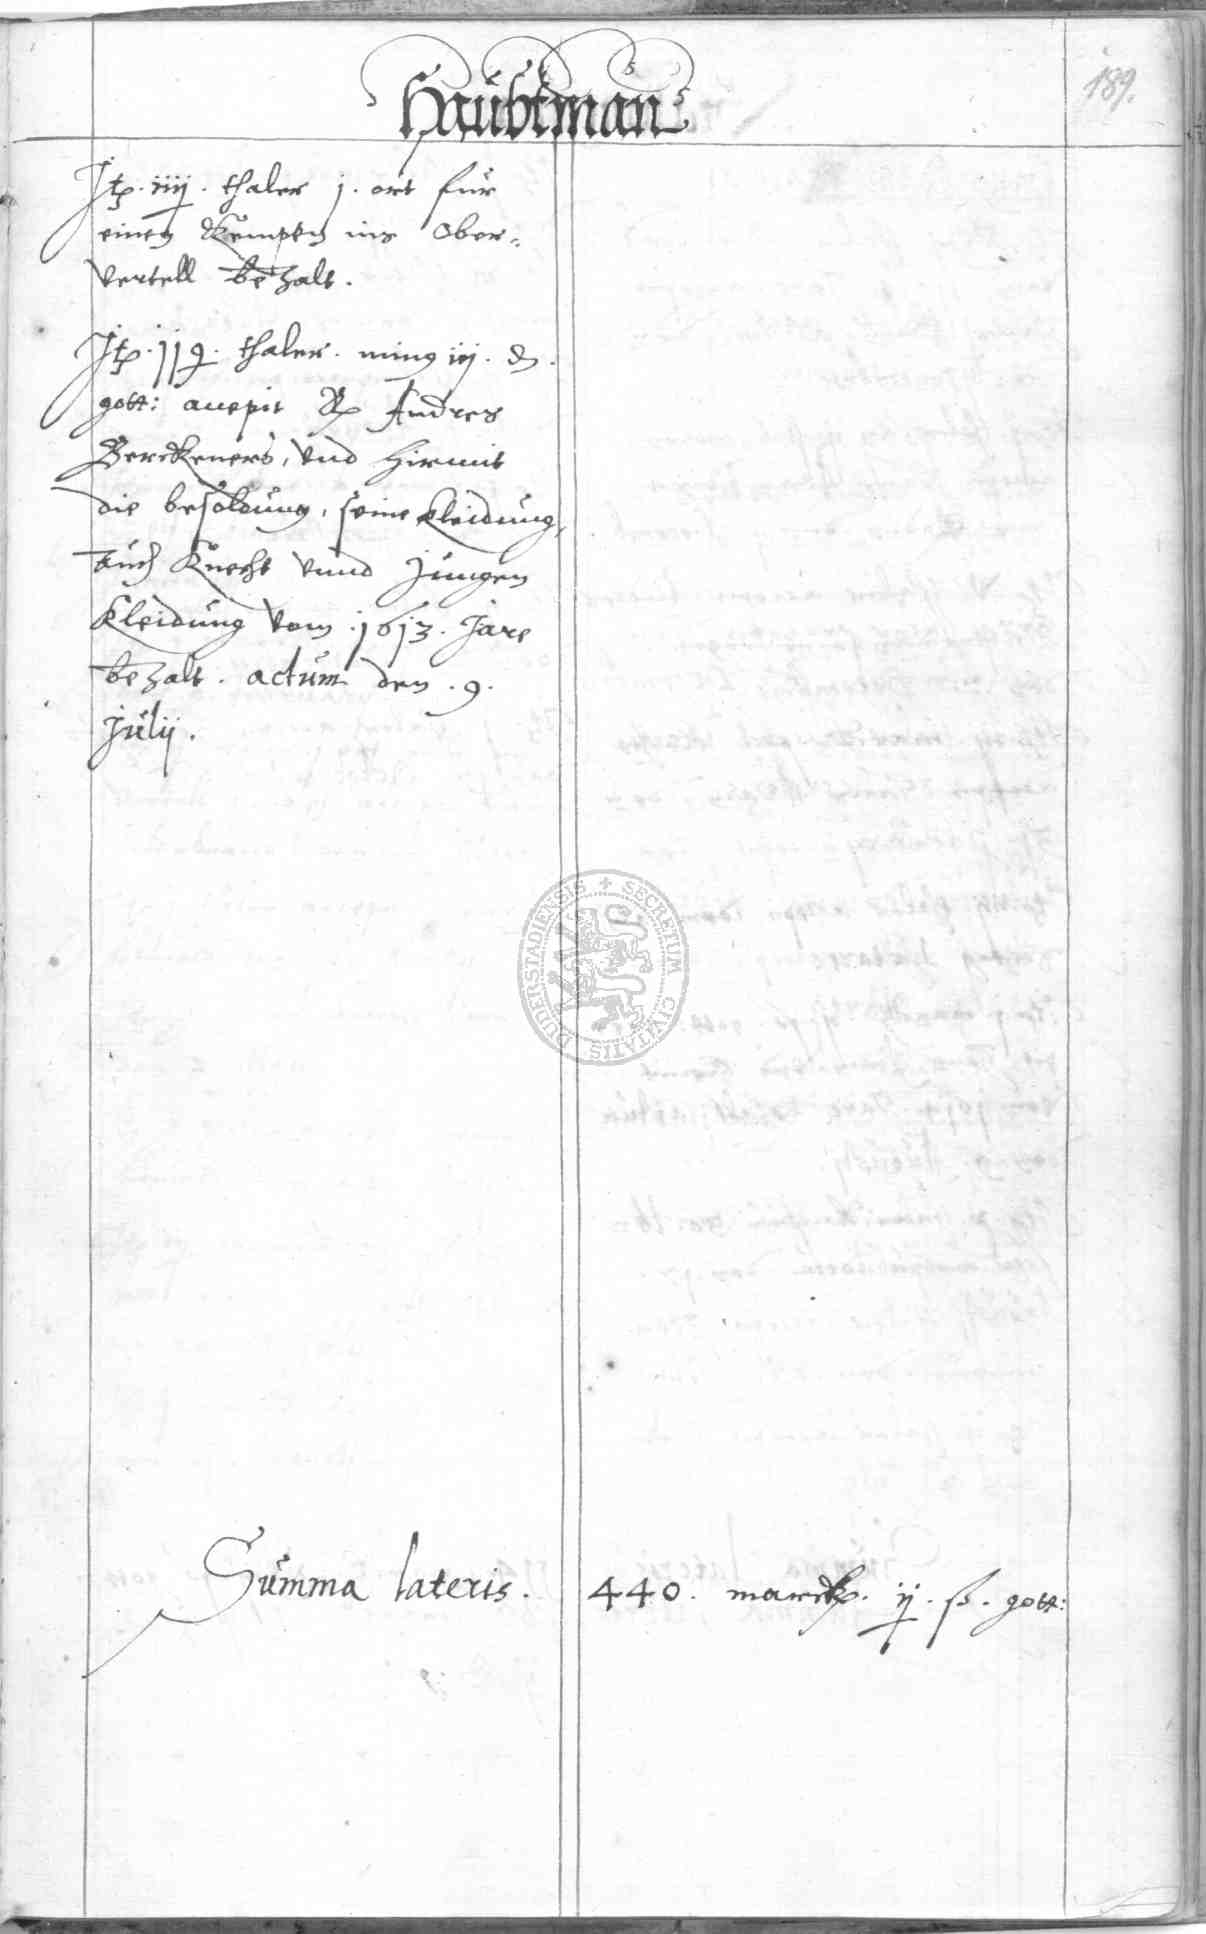 Haubtman
189.
Jtz. iiij. thaler j. ort fur
einen Kempen ins Ober-
vertell bezalt.
Jtz. 119. thaler. ming iij. d.
gott: accepit H Andres
Berckeners, vnd hirmit
die besoldung, seine kleidung,
auch Knecht vnnd Jungen
kleidung vom .1613. Jare
bezalt. actum den .9.
Julij.
DUDERSTADIENSIS + SECRETUM CIVITATIS
Summa lateris. 440. marck. ij. ß. gott: